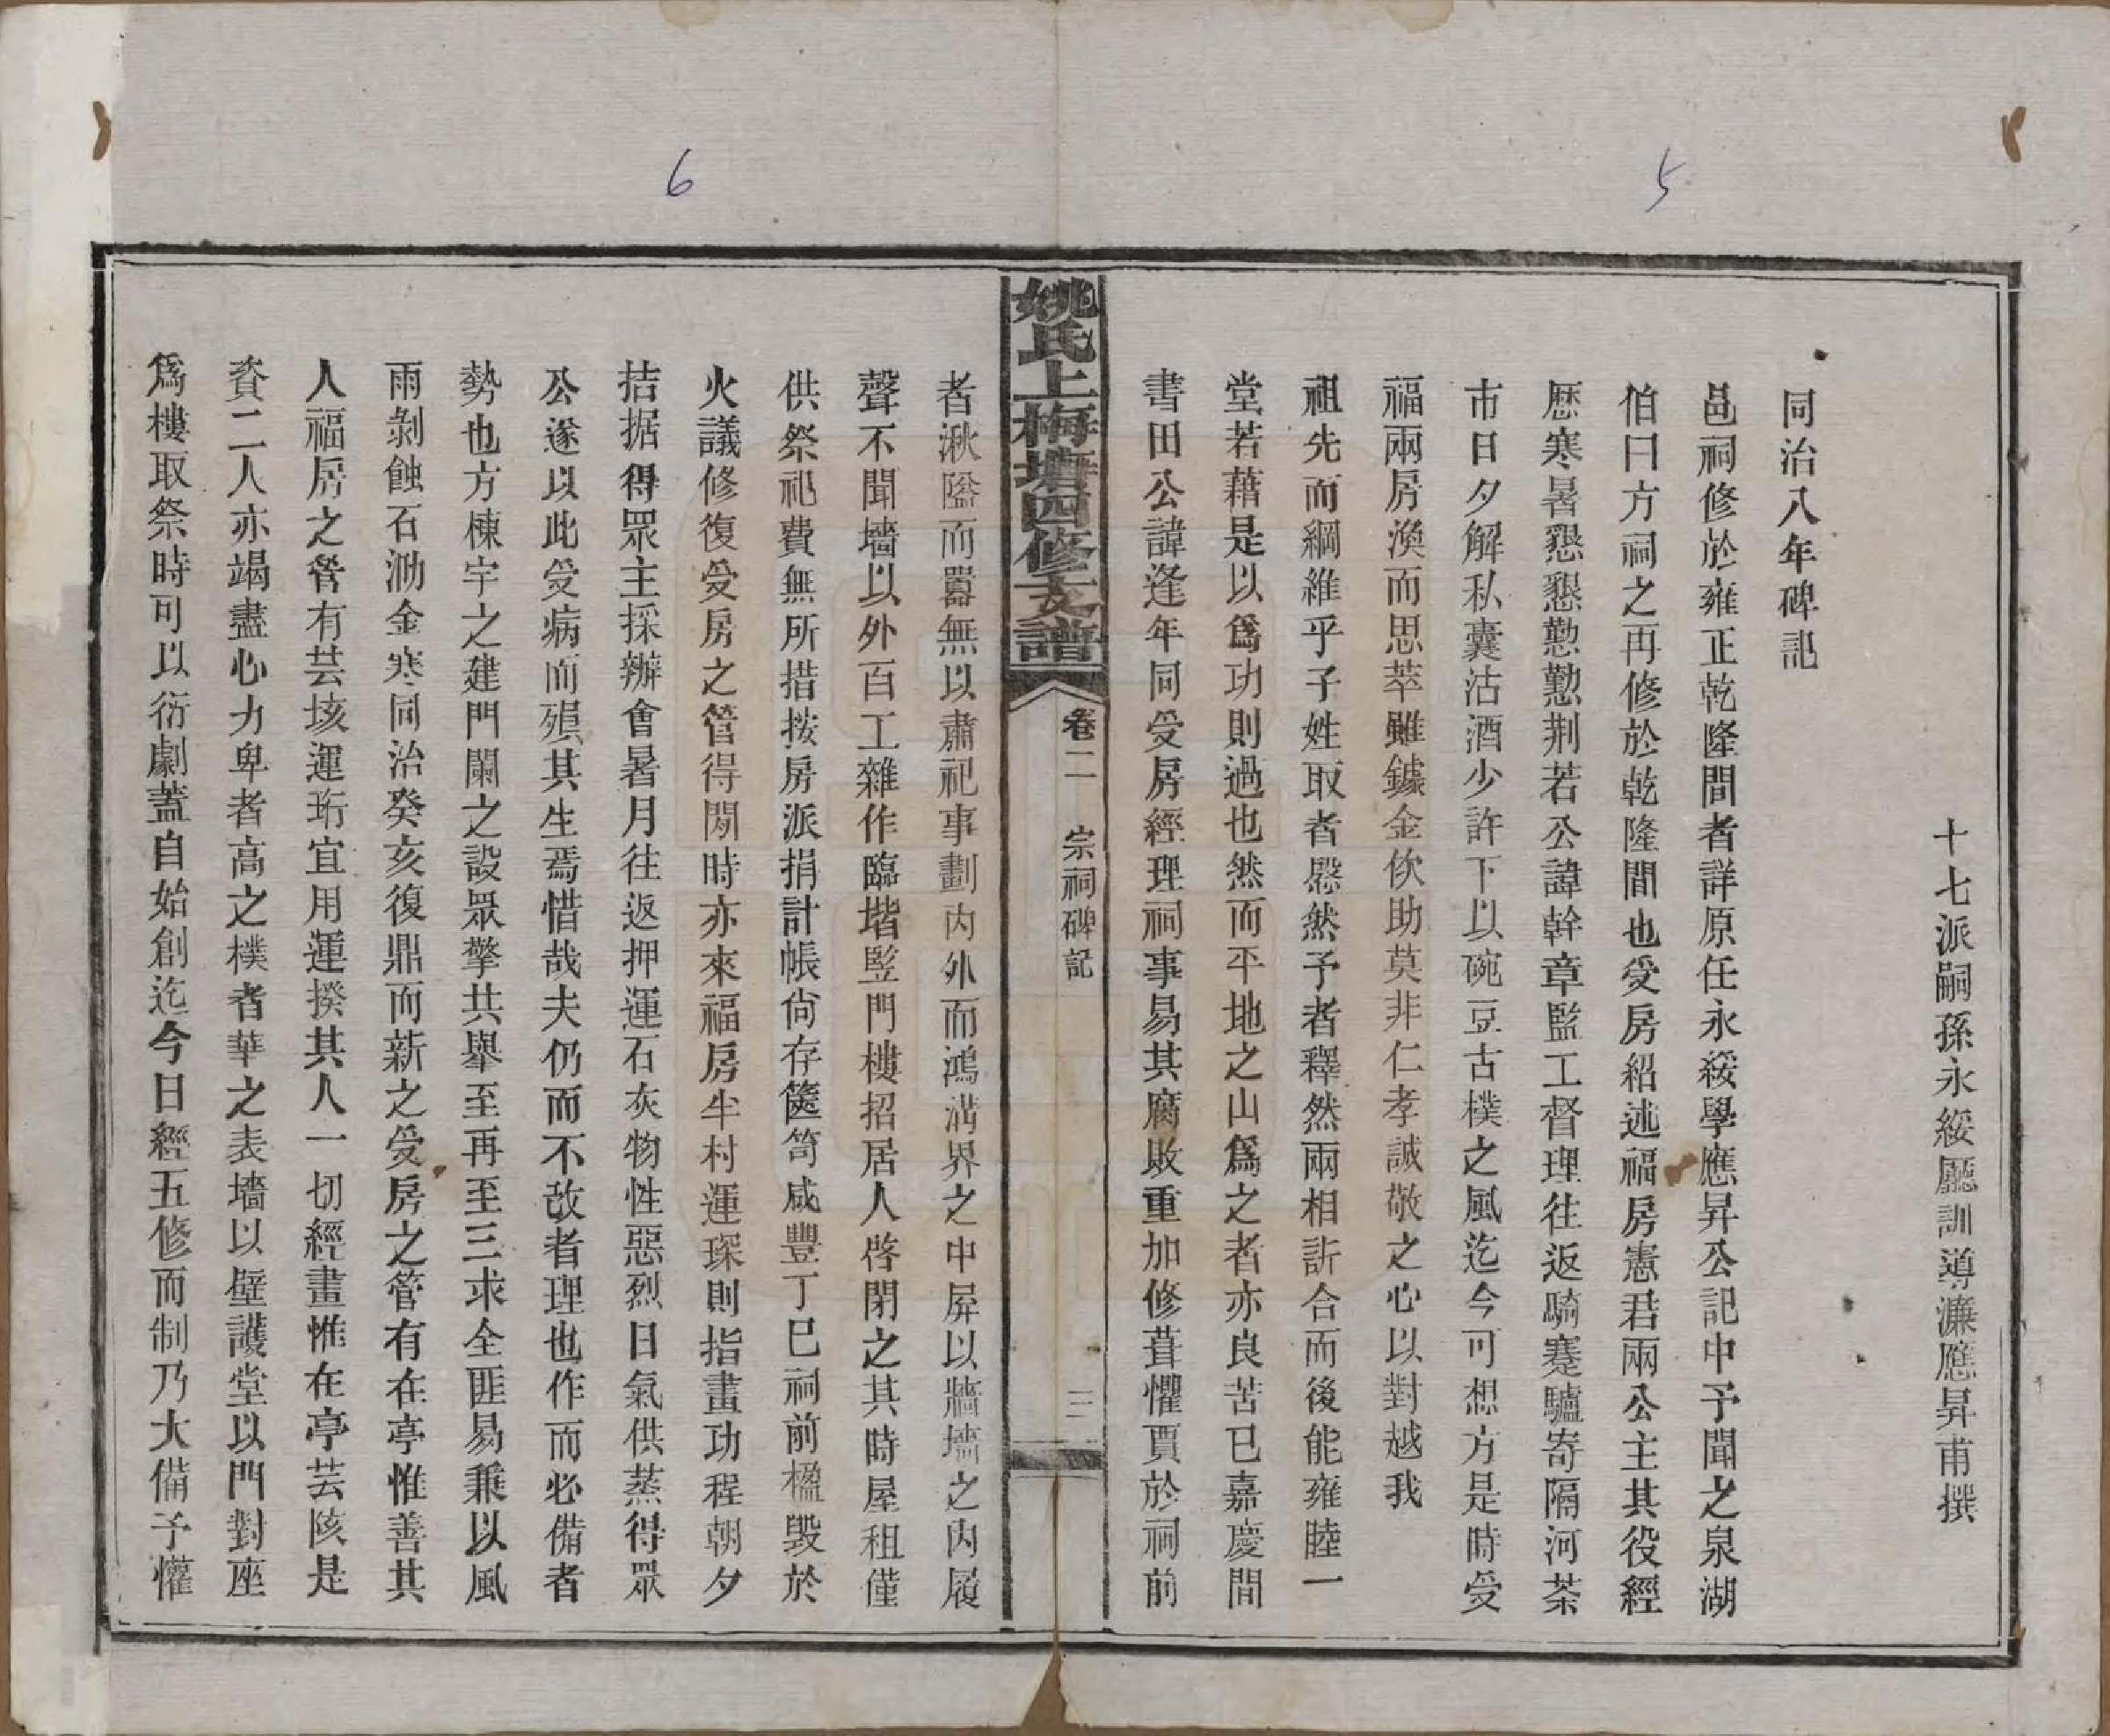 5
6
十七派嗣孫永綏廳訓導濂應昇甫撰
同治八年碑記
邑祠修於雍正乾隆間者詳原任永綏學應昇公記中予聞之泉湖
伯曰方祠之再修於乾隆間也受房紹述福房憲君兩公主其役經
歷寒暑懇懇懃懃荆若公諱幹章監工督理往返騎蹇驢寄隔河茶
市日夕解私囊沽酒少許下以碗豆古樸之風迄今可想方是時受
福兩房渙而思萃雖鐻金佽助莫非仁孝誠敬之心以對越我
祖先而綱維乎子姓取者愍然予者釋然兩相訢合而後能雍睦一
堂若藉是以爲功則過也然而平地之山爲之者亦良苦已嘉慶間
書田公諱逢年同受房經理祠事易其腐敗重加修葺懼賈於祠前
姚氏上梅塘四修支譜
卷二
宗祠碑記
三
者湫隘而囂無以肅祀事劃内外而鴻溝界之中屏以牆墻之内履
聲不聞墻以外百工雜作臨堦豎門樓招居人啓閉之其時屋租僅
供祭祀費無所措按房派捐計帳尙存篋笥咸豐丁巳祠前楹毁於
火議修復受房之管得閒時亦來福房半村運琛則指畫功程朝夕
拮据得眾主採辦會暑月往返押運石灰物性惡烈日氣供蒸得眾
公遂以此受病而殞其生焉惜哉夫仍而不改者理也作而必備者
勢也方棟宇之建門闌之設眾擎共舉至再至三求全匪易兼以風
雨剝蝕石泐金寒同治癸亥復鼎而新之受房之管有在亭惟善其
人福房之管有芸垓運珩宜用運揆其人一切經畫惟在亭芸陔是
賚二人亦竭盡心力卑者高之樸者華之表墻以壁護堂以門對座
爲樓取祭時可以衍劇蓋自始創迄今日經五修而制乃大備予懽